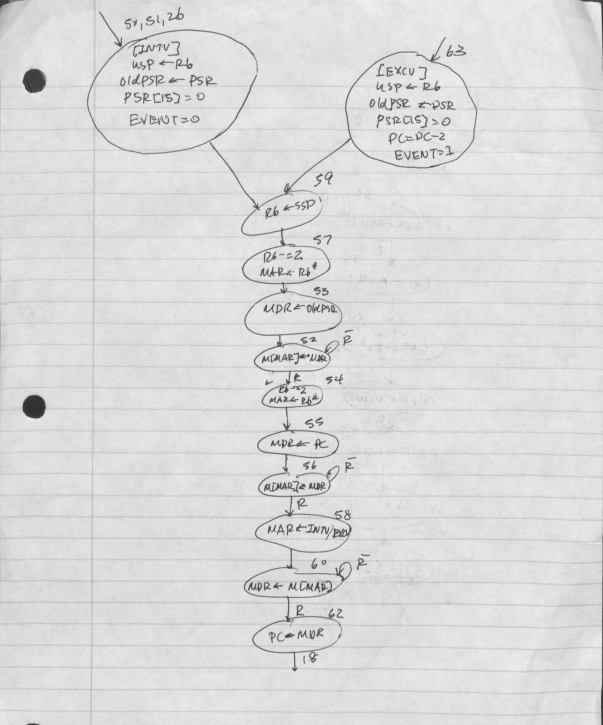 50, 51, 26
[INTV]
USP ← R6
oldPSR ← PSR
PSR[15] = 0
EVENT = 0
63
[EXCV]
USP ← R6
oldPSR ← PSR
PSR[15] = 0
PC = PC-2
EVENT = 1
59
R6 ← SSP
57
R6 -= 2
MAR ← R6*
53
MDR ← OldPSR
52
M[MAR] ← MDR
R̅
R
54
R6 -= 2
MAR ← R6*
55
MDR ← PC
56
M[MAR] ← MDR
R̅
R
58
MAR ← INTV/EXCV
60
MDR ← M[MAR]
R̅
R
62
PC ← MDR
18